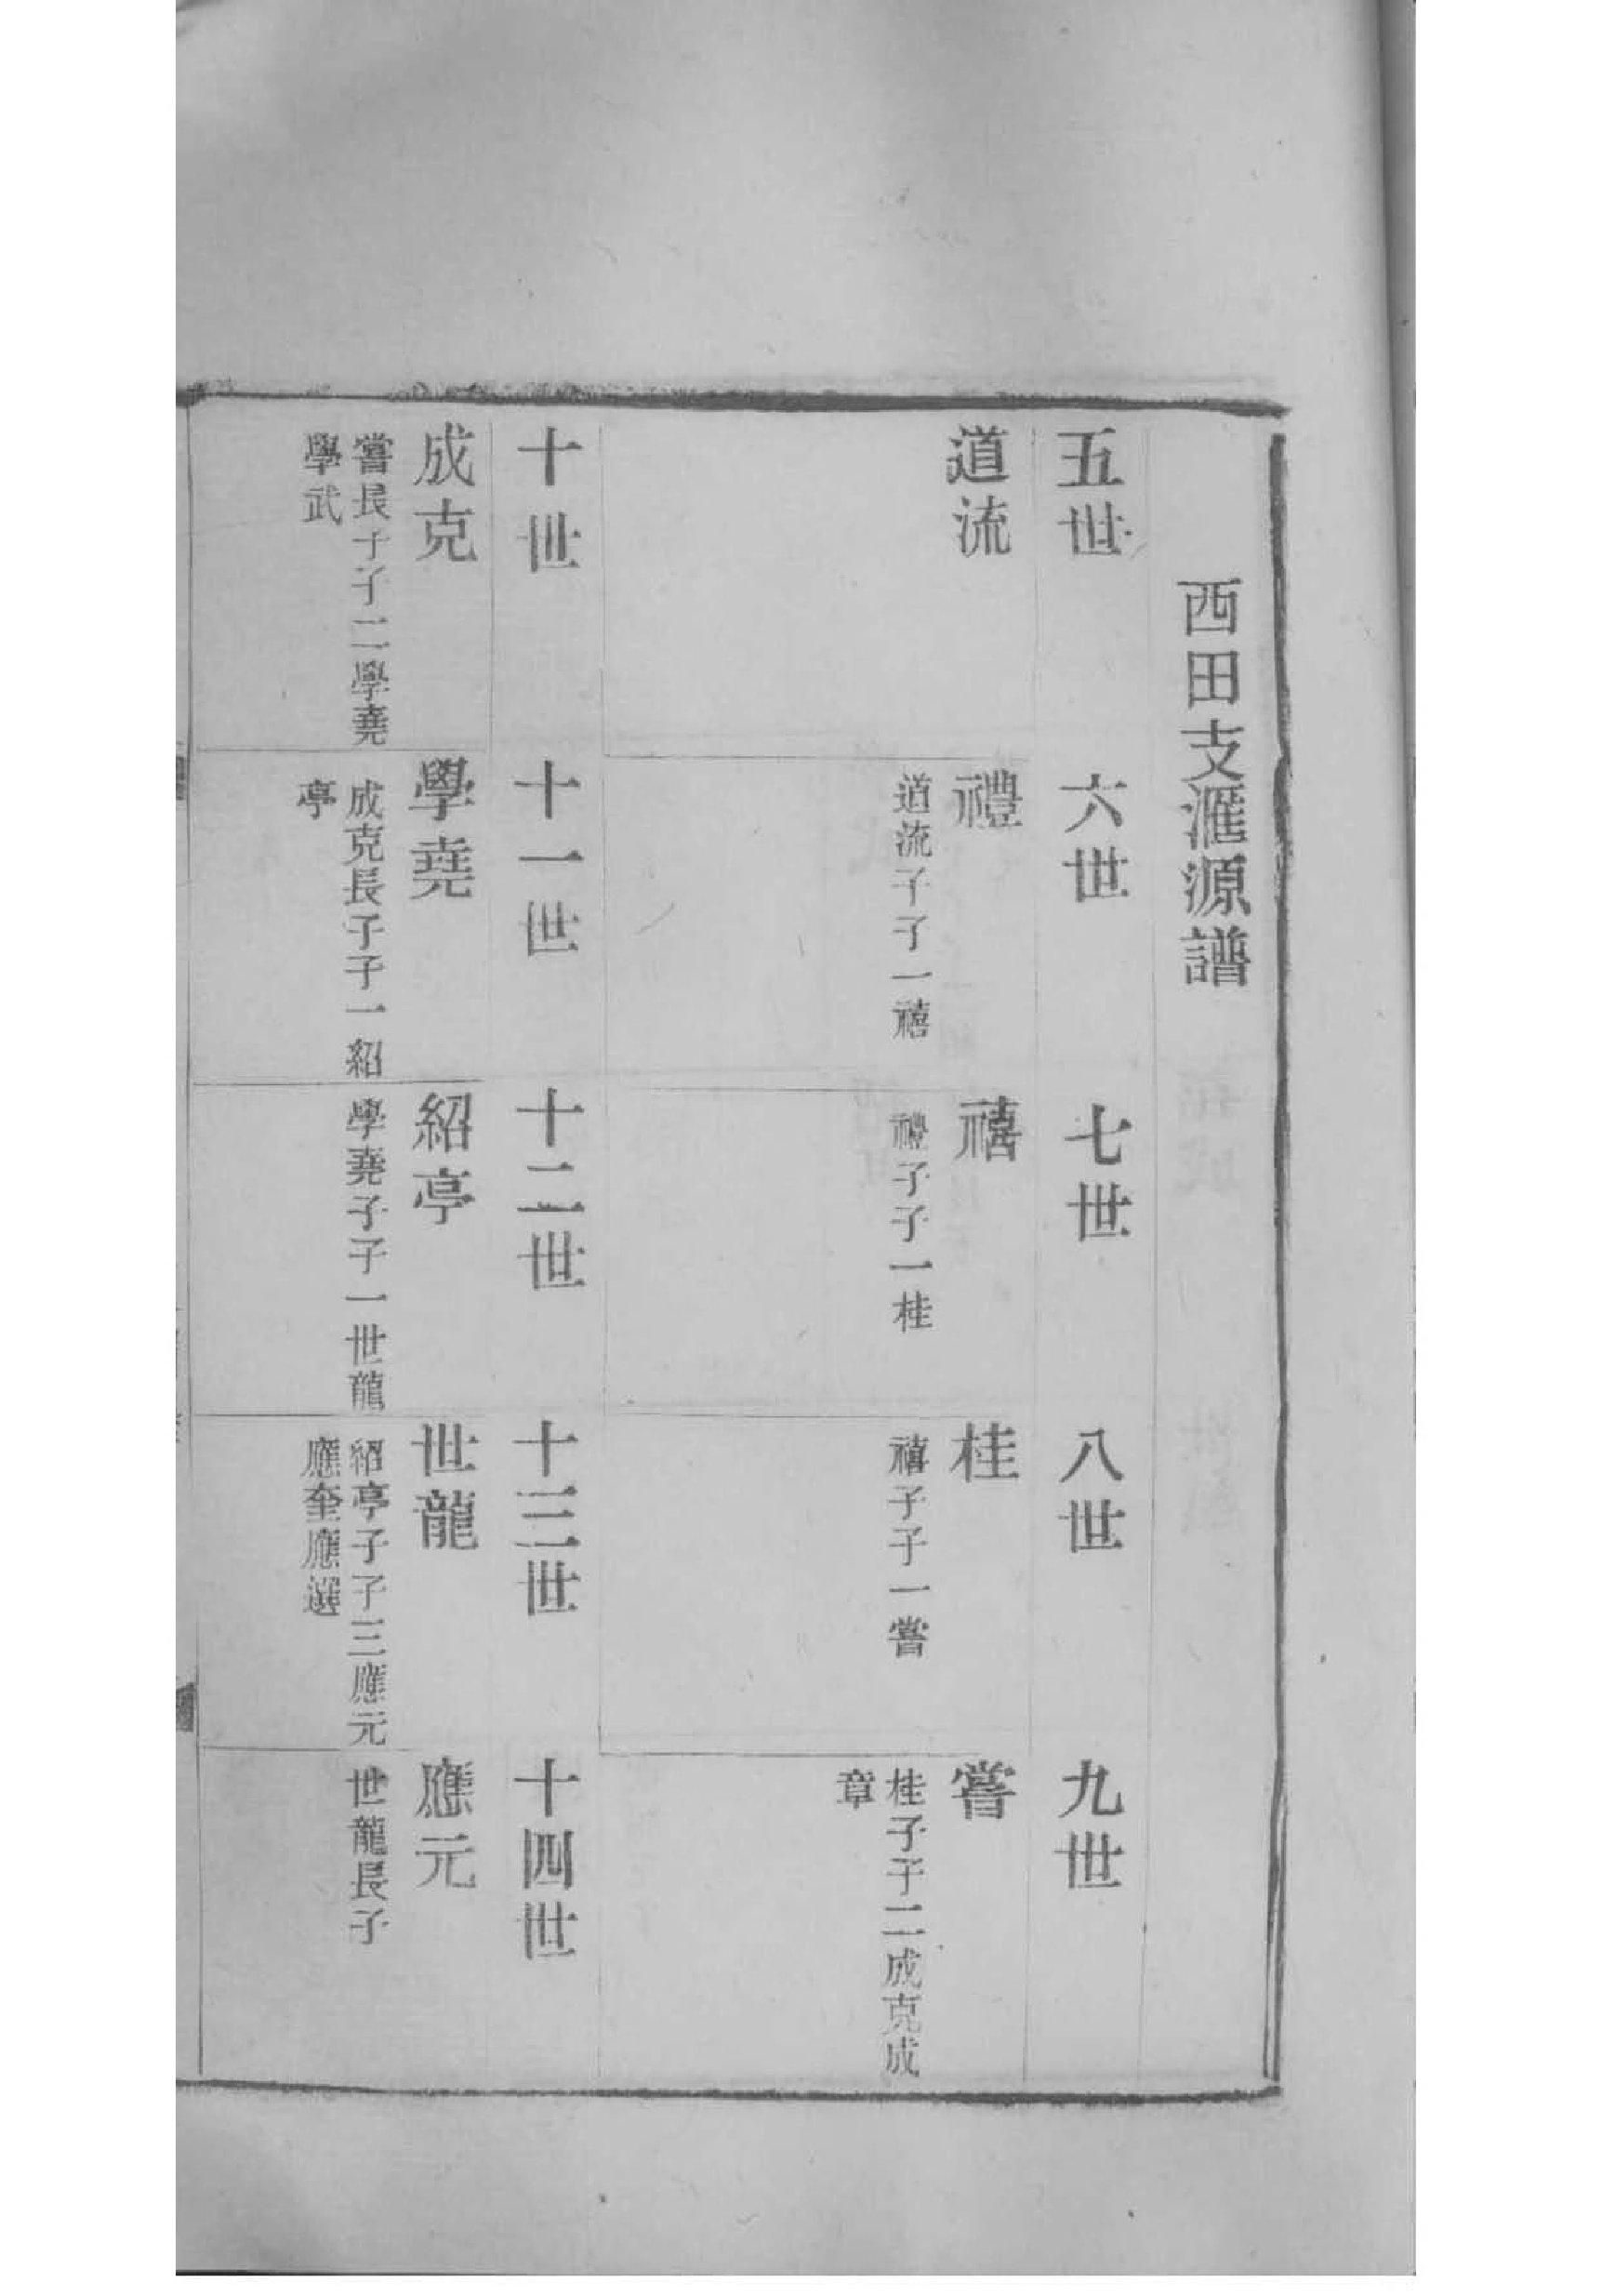 西田支滙源譜
五世
六世
七世
八世
九世
道流
禮
道流子子一禧
禧
禮子子一桂
桂
禧子子一嘗
嘗
桂子子二成克成
章
十世
十一世
十二世
十三世
十四世
成克
嘗長子子二學堯
學武
學堯
成克長子子一紹
亭
紹亭
學堯子子一世龍
世龍
紹亭子子三應元
應奎應選
應元
世龍長子